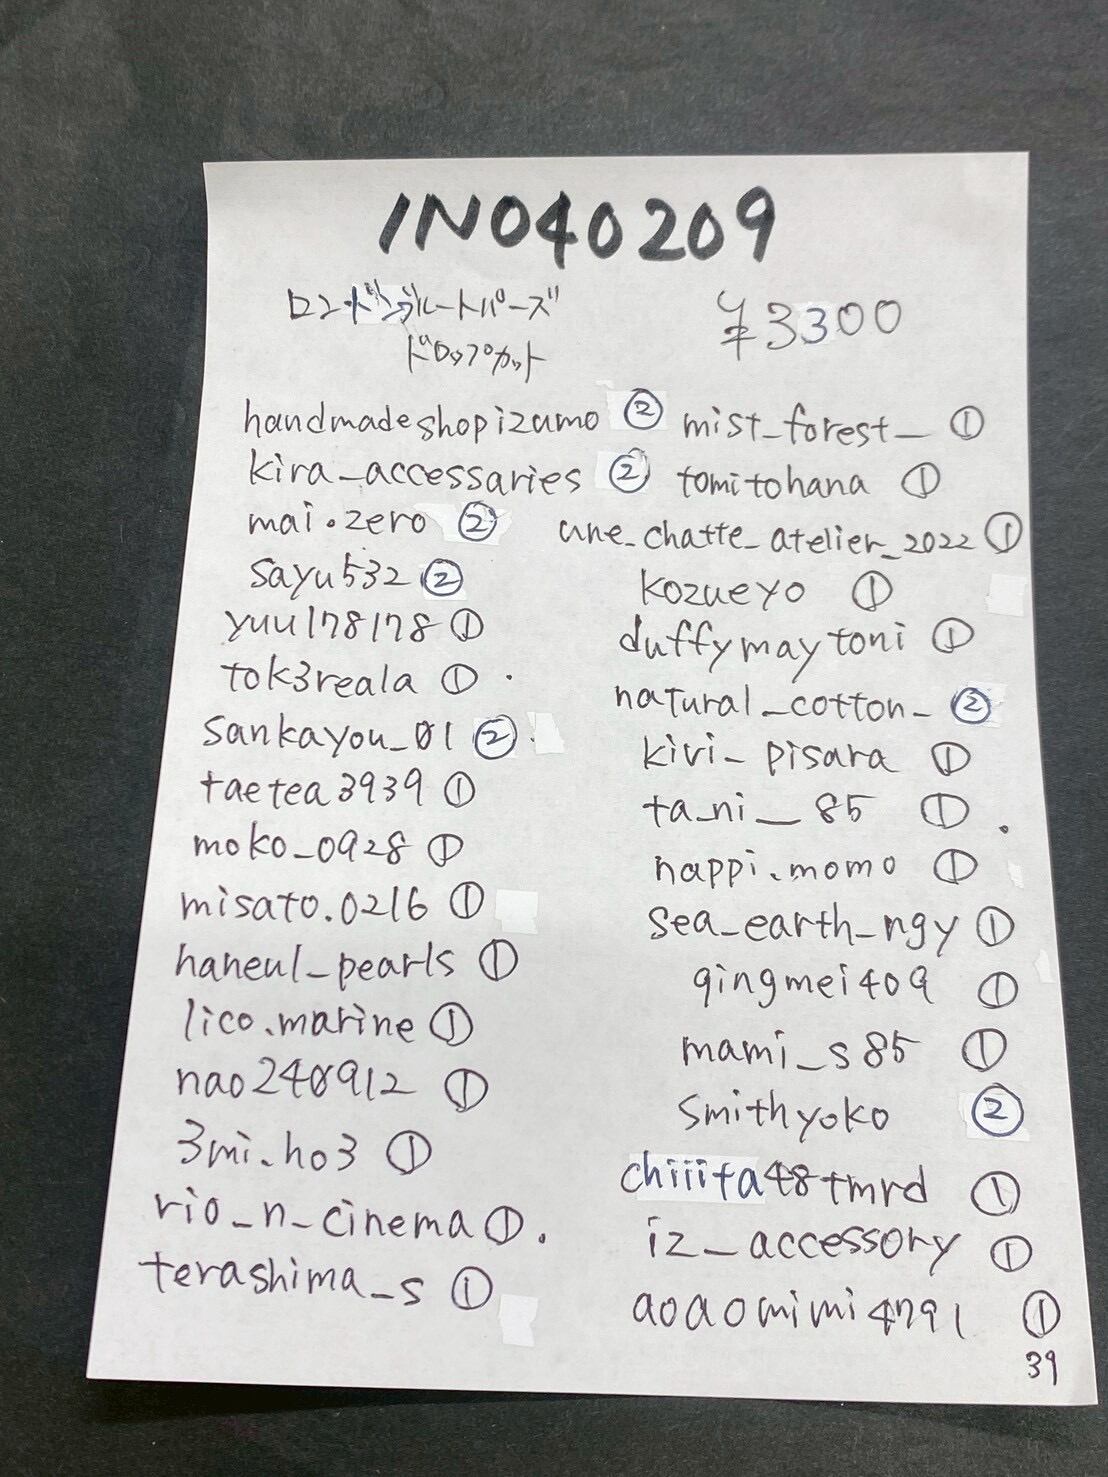 IN040209
ロンドンブルートパーズ ¥3300
ドロップカット
handmadeshopizumo ②
kira_accessaries ②
mai.zero ②
sayu532 ②
yuu178178 ①
tok3reala ①
sankayou_01 ②
taetea3939 ①
moko_0928 ①
misato.0216 ①
haneul_pearls ①
lico.marine ①
nao240912 ①
3mi.ho3 ①
rio_n_cinema ①
terashima_s ①
mist_forest_ ①
tomitohana ①
une_chatte_atelier_2022 ①
kozueyo ①
duffymaytoni ①
natural_cotton_ ②
kivi_pisara ①
ta_ni__85 ①
nappi.momo ①
sea_earth_ngy ①
qingmei409 ①
mami_s85 ①
smithyoko ②
chiiita48tmrd ①
iz_accessory ①
aoaomimi4791 ①
39